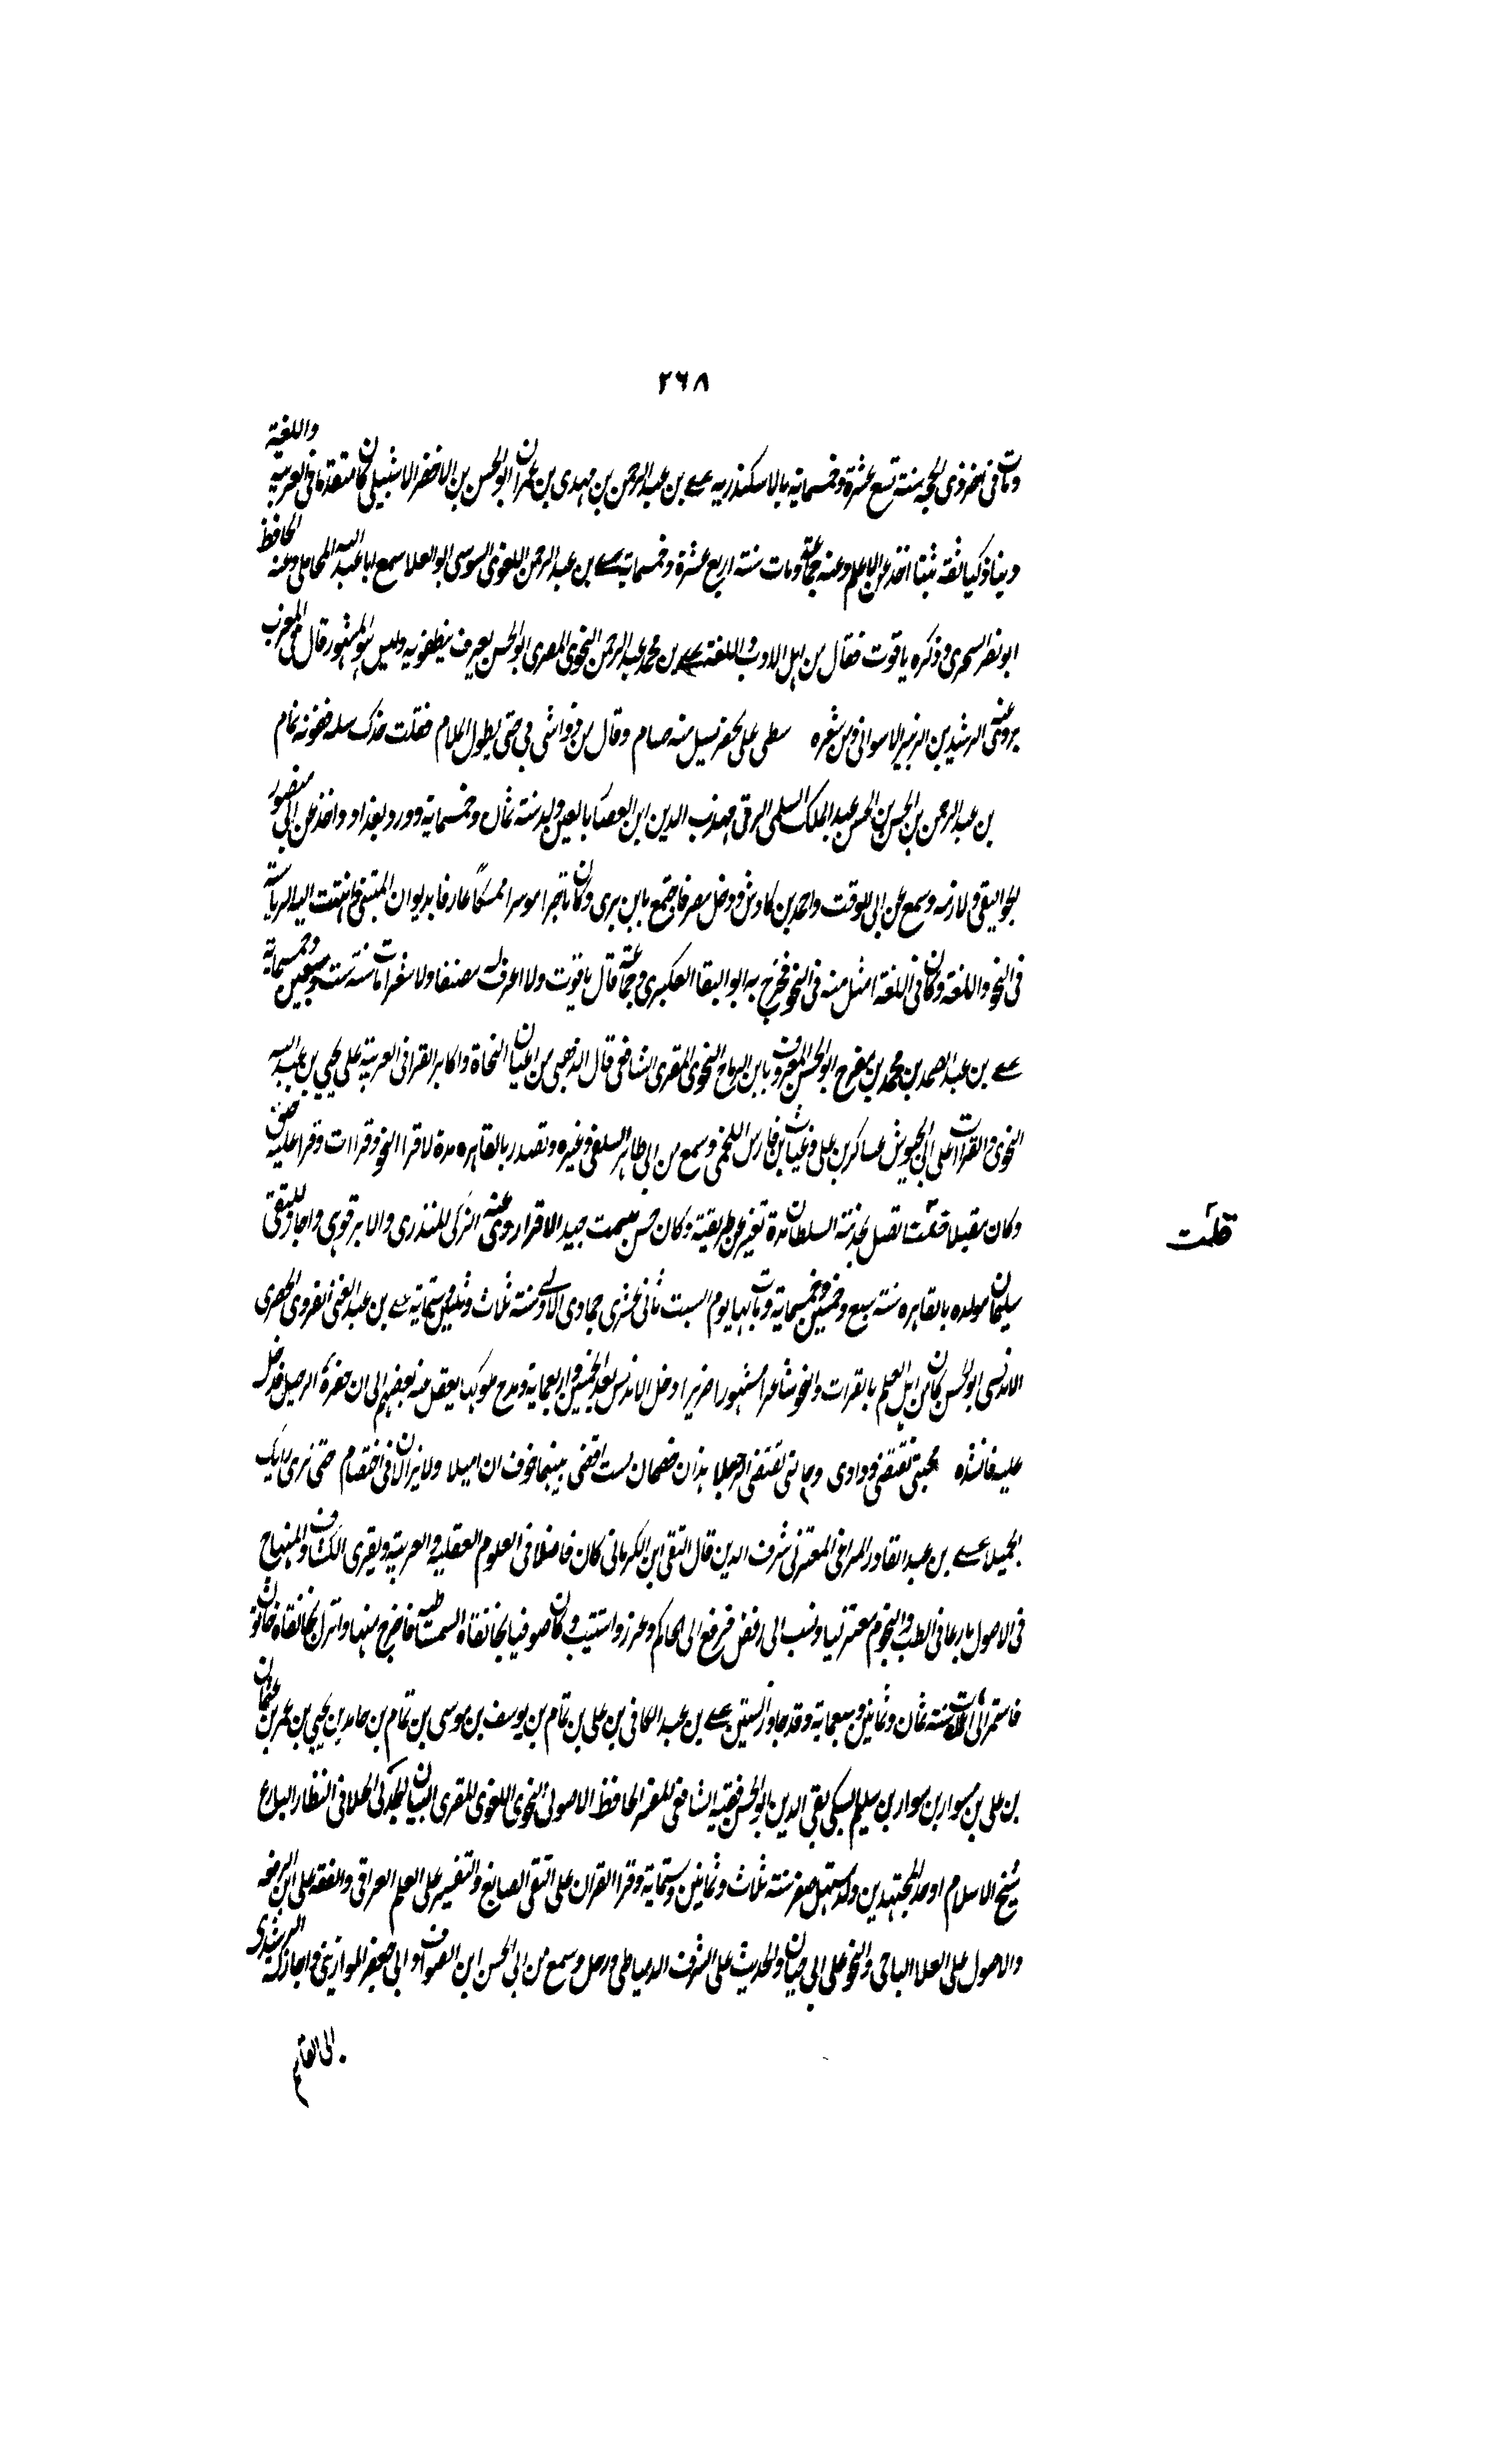 ٢٦٨
ومات في آخر ذي الحجة سنة تسع عشرة وخمسماية بالاسكندرية علے بن عبد الرحمن بن مهدي بن عمران ابو الحسن بن الاخضر الاشبيلي كان متقدما في العربية واللغة
دينا ذكيا ثقة ثبتا اخذ عن الاعلم وعنه جماعة ومات سنة اربع عشرة وخمسماية علے بن عبد الرحمن اللغوي السوسي ابو العلا سمع ابا عبد الله المحاملي وعنه الحافظ
ابو نصر السجزي وذكره ياقوت فقال من اهل الادب واللغة علے بن محمد عبد الرحمن النحوي المصري ابو الحسن يعرف بنفطويه وليس هو المشهور قال في المغرب
يروي عنه الرشيد بن الزبير الاسواني ومن شعره سطى على يسيل منه وقال من في حتى يطول فقلت
بن عبد الرحمن بن الحسن بن الحسن عبد الملك السلمي الرقي مهذب الدين ابن العصار بالعين ولد سنة ثمان وخمسماية وورد بغداد واخذ عن ابي منصور
الجواليقي ولازمه وسمع عن ابي الوقت واحمد بن كادش ودخل مصر فاجتمع بابن بري وكان تاجرا موسرا ممسكا عارفا بديوان المتنبي وانتهت اليه الرياسة
في النحو واللغة وكان في اللغة امثل منه في النحو تخرج به ابو البقا العكبري وجماعة قال ياقوت ولا اعرف له مصنفا ولا شعرا مات سنة ست وسبعين وخمسماية
علے بن عبد الصمد بن محمد بن مفرح ابو الحسن المعروف بابن الرماح النحوي المقري الشافعي قال الذهبي من اعيان النحاة واكابر القرا في العربية على يحيى بن عبد الله
النحوي والقرات على ابي الجيوش عساكر بن علي وغياث بن فارس اللخمي وسمع من ابي طاهر السلفي وغيره وتصدر بالقاهرة مدة لاقرا النحو وقرات وقرا عليه خلق
وكان مقبلا اتصل بخدمة السلطان مدة تغير عن طريقته وكان حسن سمت جيد الاقرا روى عنه الزكي المنذري والابرقوهي واجاز للتقي
قلت
سليمان مولده بالقاهرة سنة سبع وخمسين وخمسماية ومات بها يوم السبت ثاني عشري جمادى الاولى سنة ثلاث وثلاثين وستماية علے بن عبد الغني القروي الحصري
الاندلسي ابو الحسن كان من اهل العلم بالقرات والنحو شاعرا مشهورا ضريرا دخل الاندلس بعد الخمسين واربعماية ومدح ملوكها يعقل منه بعضهم الى ان حضرة الرحيل فدخل
عليه فانشده محبتي تقتضي ودادي وحالتي تقتضي الرحيلا هذان خصمان لست اقضي بينهما خوف ان اميلا ولا يزالان في اختصام حتى نرى رايك
الجميلا علے بن عبد القادر المراغي المعتزلي شرف الدين قال التقي ابن الكرماني كان فاضلا في العلوم العقلية والعربية ويقري الكشاف والمنهاج
في الاصول بارعا في الطب والنجوم معتزليا ونسب الى رفض فرفع الى الحاكم وعزر واستتيب وكان صوفيا بخانقاه السمساطية فاخرج منها وانزل بخانقاه خاتون
فاستمر الى ان مات سنة ثمان وثمانين وسبعماية وقد جاوز الستين علے بن عبد الكافي بن علي بن تمام بن يوسف بن موسى بن تمام بن حامد بن يحيى بن عمر بن عثمان
بن علي بن مسوار بن سوار بن سليم السبكي تقي الدين ابو الحسن الفقيه الشافعي المفسر الحافظ الاصولي النحوي اللغوي المقري البياني الجدلي الخلافي النظار البارع
شيخ الاسلام اوحد المجتهدين ولد مستهل صفر سنة ثلاث وثمانين وستماية وقرا القران على التقي الصايغ والتفسير على العلم العراقي والفقه على ابن الرفعة
والاصول على العلا الباجي والنحو على ابي حيان والحديث على الشرف الدمياطي ورحل وسمع من ابي الحسن ابن الصواف وابي جعفر الموازيني واجاز له الرشيدي
ابي القاسم